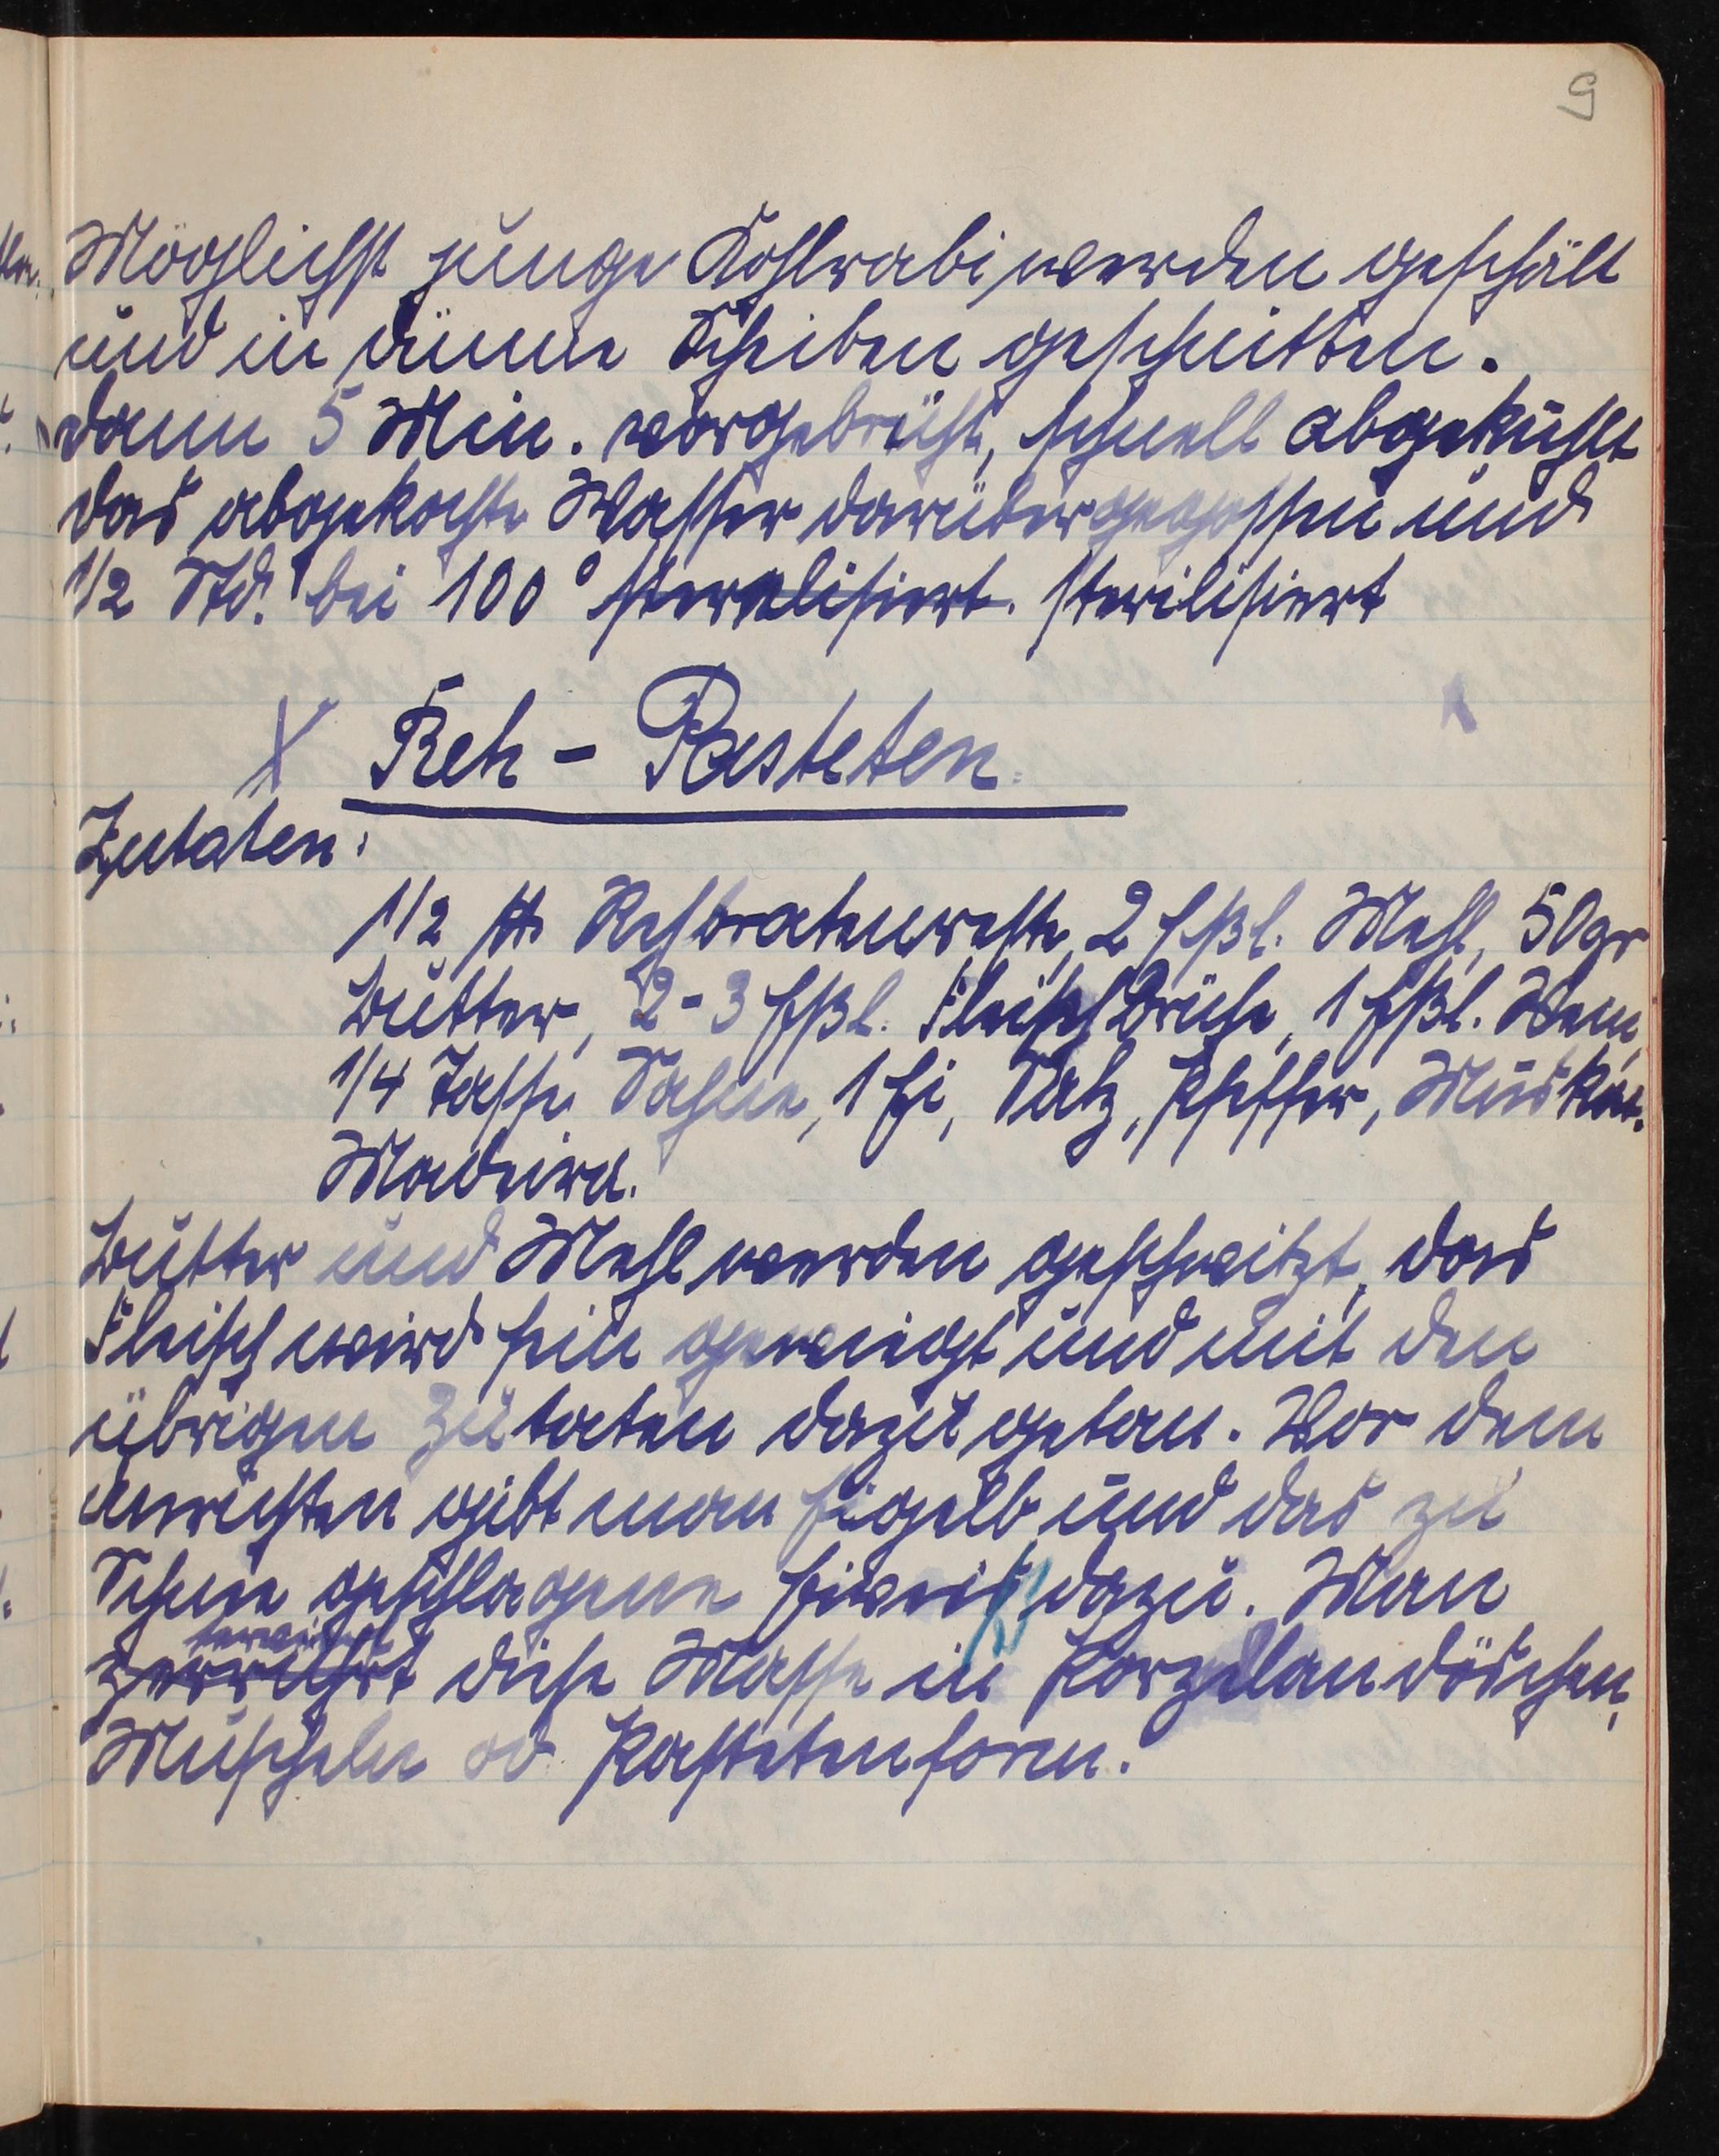 9
Möglichst junge Kohlrabi werden geschält
und in dünne Scheiben geschnitten.
dann 5 Min. vorgebrüht, schnell abgekühlt
das abgekochte Wasser darübergegossen und
1/2 Std. bei 100° steralisiert. sterilisiert
X Reh - Pasteten.
Zutaten:
1/2 ℔ Rehbratenreste, 2 Eßl. Mehl, 50gr
Butter, 2-3 Eßl. Fleischbrühe, 1 Eßl. Wein,
1/4 Tasse Sahne, 1 Ei, Salz, Pfeffer, Muskat.
Madeira.
Butter und Mehl werden geschwitzt, das
Fleisch wird fein gewiegt und mit den
übrigen Zutaten dazu getan. Vor dem
anrichten gibt man Eigelb und das zu
Schnee geschlagene Eiweiß dazu. Man
serviert
diese Masse in Porzelandöschen,
Muscheln od Pastetenform.